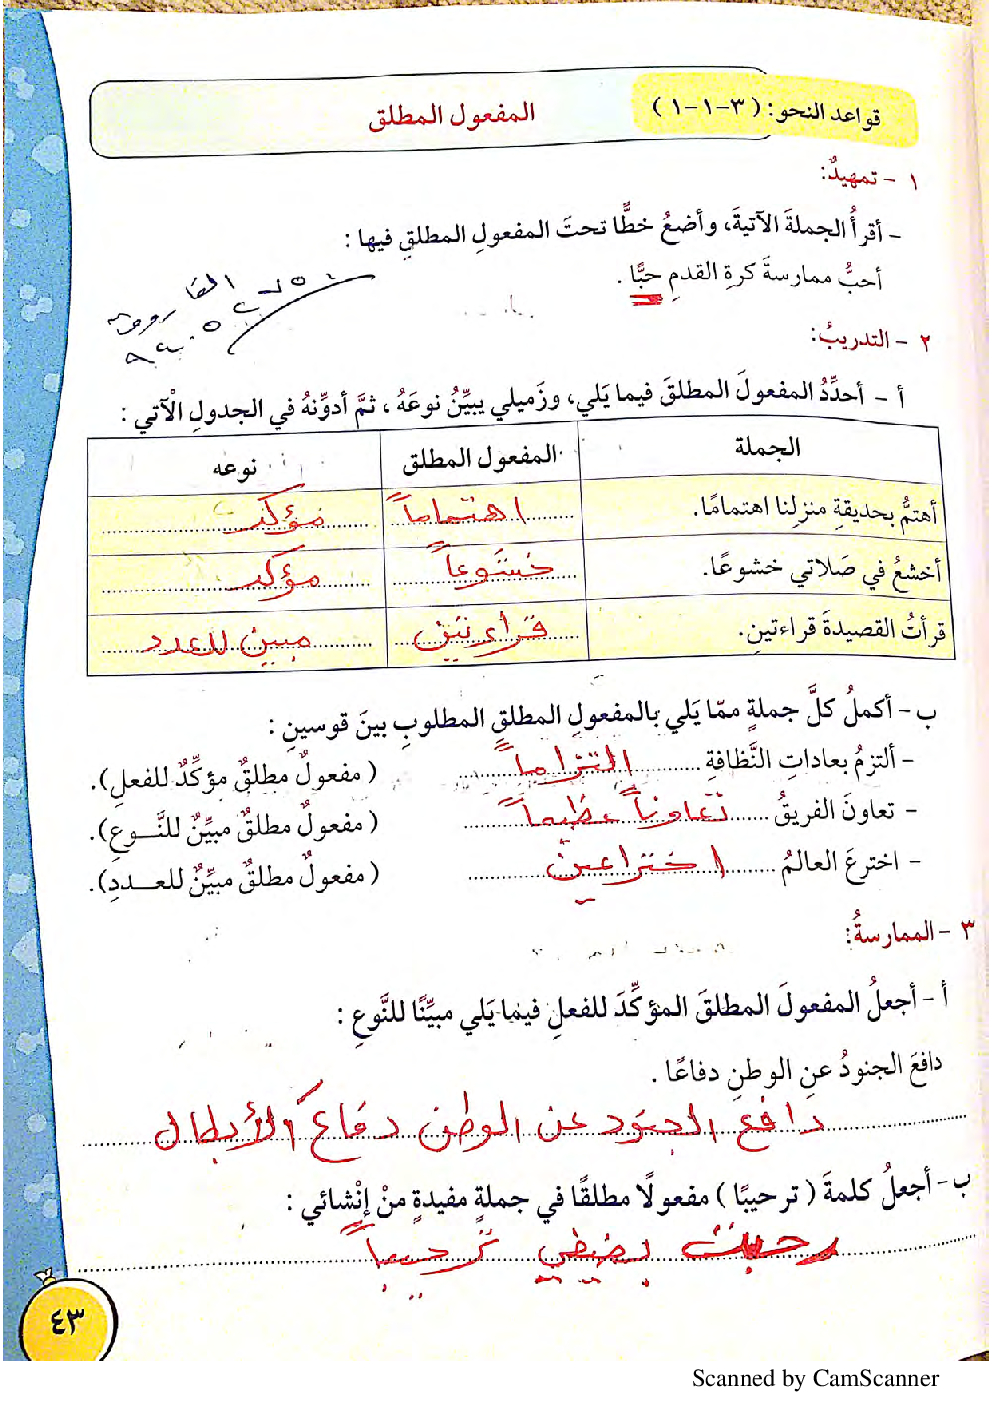 قواعد النحو: (٣-١-١) المفعول المطلق
١ - تمهيدٌ:
- أقرأُ الجملةَ الآتيةَ، وأضعُ خطًّا تحتَ المفعولِ المطلقِ فيها:
أحبُّ ممارسةَ كرةِ القدمِ حبًّا.
٢ - التدريبُ:
أ - أحدِّدُ المفعولَ المطلقَ فيما يَلي، وزَميلي يبيِّنُ نوعَهُ، ثمَّ أدوِّنهُ في الجدولِ الْآتي:
الجملة المفعول المطلق نوعه
أهتمُّ بحديقةِ منزلِنا اهتمامًا. اهتماماً مؤكد
أخشعُ في صَلاتي خشوعًا. خشوعاً مؤكد
قرأتُ القصيدةَ قراءتينِ. قراءتين مبين للعدد
ب - أكملُ كلَّ جملةٍ ممّا يَلي بالمفعولِ المطلقِ المطلوبِ بينَ قوسينِ:
- ألتزمُ بعاداتِ النَّظافةِ التزاماً (مفعولٌ مطلقٌ مؤكِّدٌ للفعلِ).
- تعاونَ الفريقُ تعاوناً عظيماً (مفعولٌ مطلقٌ مبيِّنٌ للنَّوعِ).
- اخترعَ العالمُ اختراعين (مفعولٌ مطلقٌ مبيِّنٌ للعددِ).
٣ - الممارسةُ:
أ - أجعلُ المفعولَ المطلقَ المؤكِّدَ للفعلِ فيما يَلي مبيِّنًا للنَّوعِ:
دافعَ الجنودُ عنِ الوطنِ دفاعًا.
دافع الجنود عن الوطن دفاع الأبطال
ب - أجعلُ كلمةَ (ترحيبًا) مفعولًا مطلقًا في جملةٍ مفيدةٍ منْ إنْشائي:
رحبت بضيفي ترحيباً
٤٣
Scanned by CamScanner